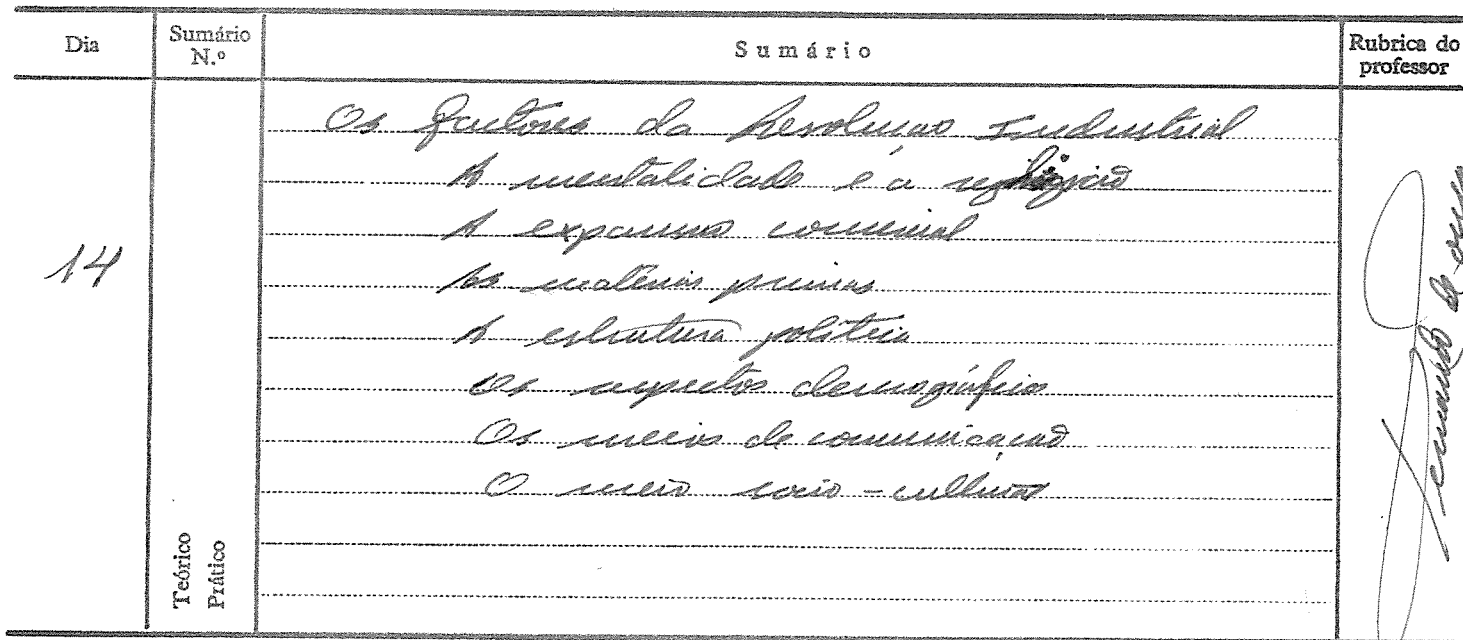 Dia
Sumário N.º
Sumário
Rubrica do professor
14
Os factores da Revolução Industrial
A mentalidade e a religião
A expansão comercial
As matérias primas
A estrutura política
Os aspectos demográficos
Os meios de comunicação
O meio socio-cultural
Teórico
Prático
Fernando de Sousa